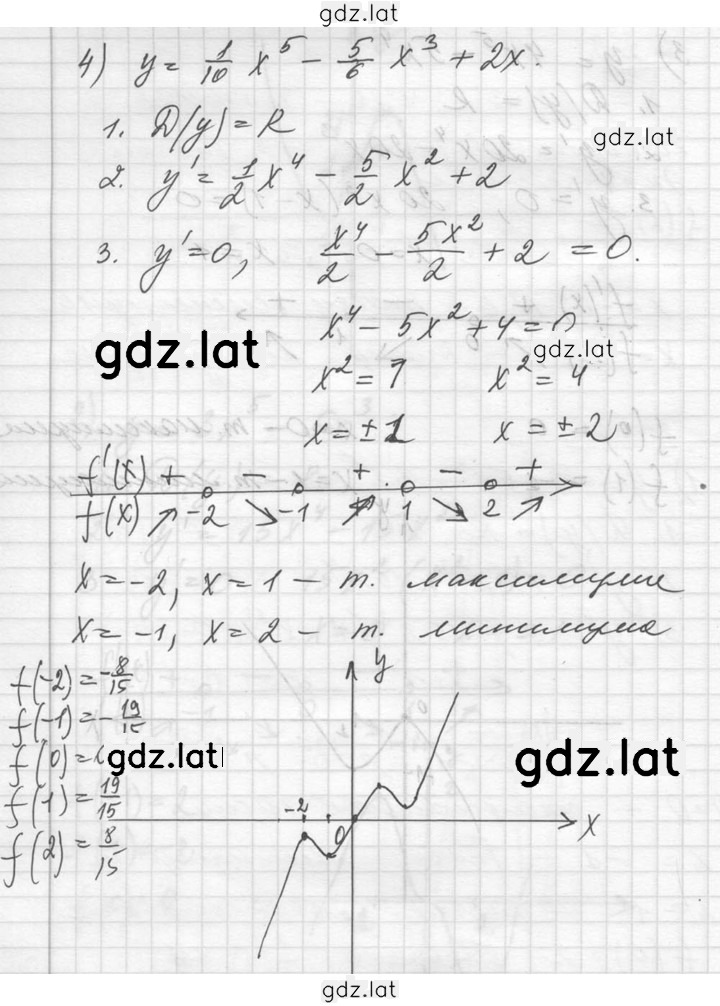 gdz.lat
4) y = 1/10 x⁵ − 5/6 x³ + 2x.
1. D(y) = R
gdz.lat
2. y' = 1/2 x⁴ − 5/2 x² + 2
3. y' = 0, x⁴/2 − 5x²/2 + 2 = 0.
x⁴ − 5x² + 4 = 0
gdz.lat
gdz.lat
x² = 1 x² = 4
x = ±1 x = ±2
f'(x) + − + − +
f(x) ↗ -2 ↘ -1 ↗ 1 ↘ 2 ↗
x = −2, x = 1 − т. максимума
x = −1, x = 2 − т. минимума
y
f(-2) = −8/15
f(-1) = −19/15
f(0) =
gdz.lat
gdz.lat
f(1) = 19/15
-2 0 x
f(2) = 8/15
gdz.lat